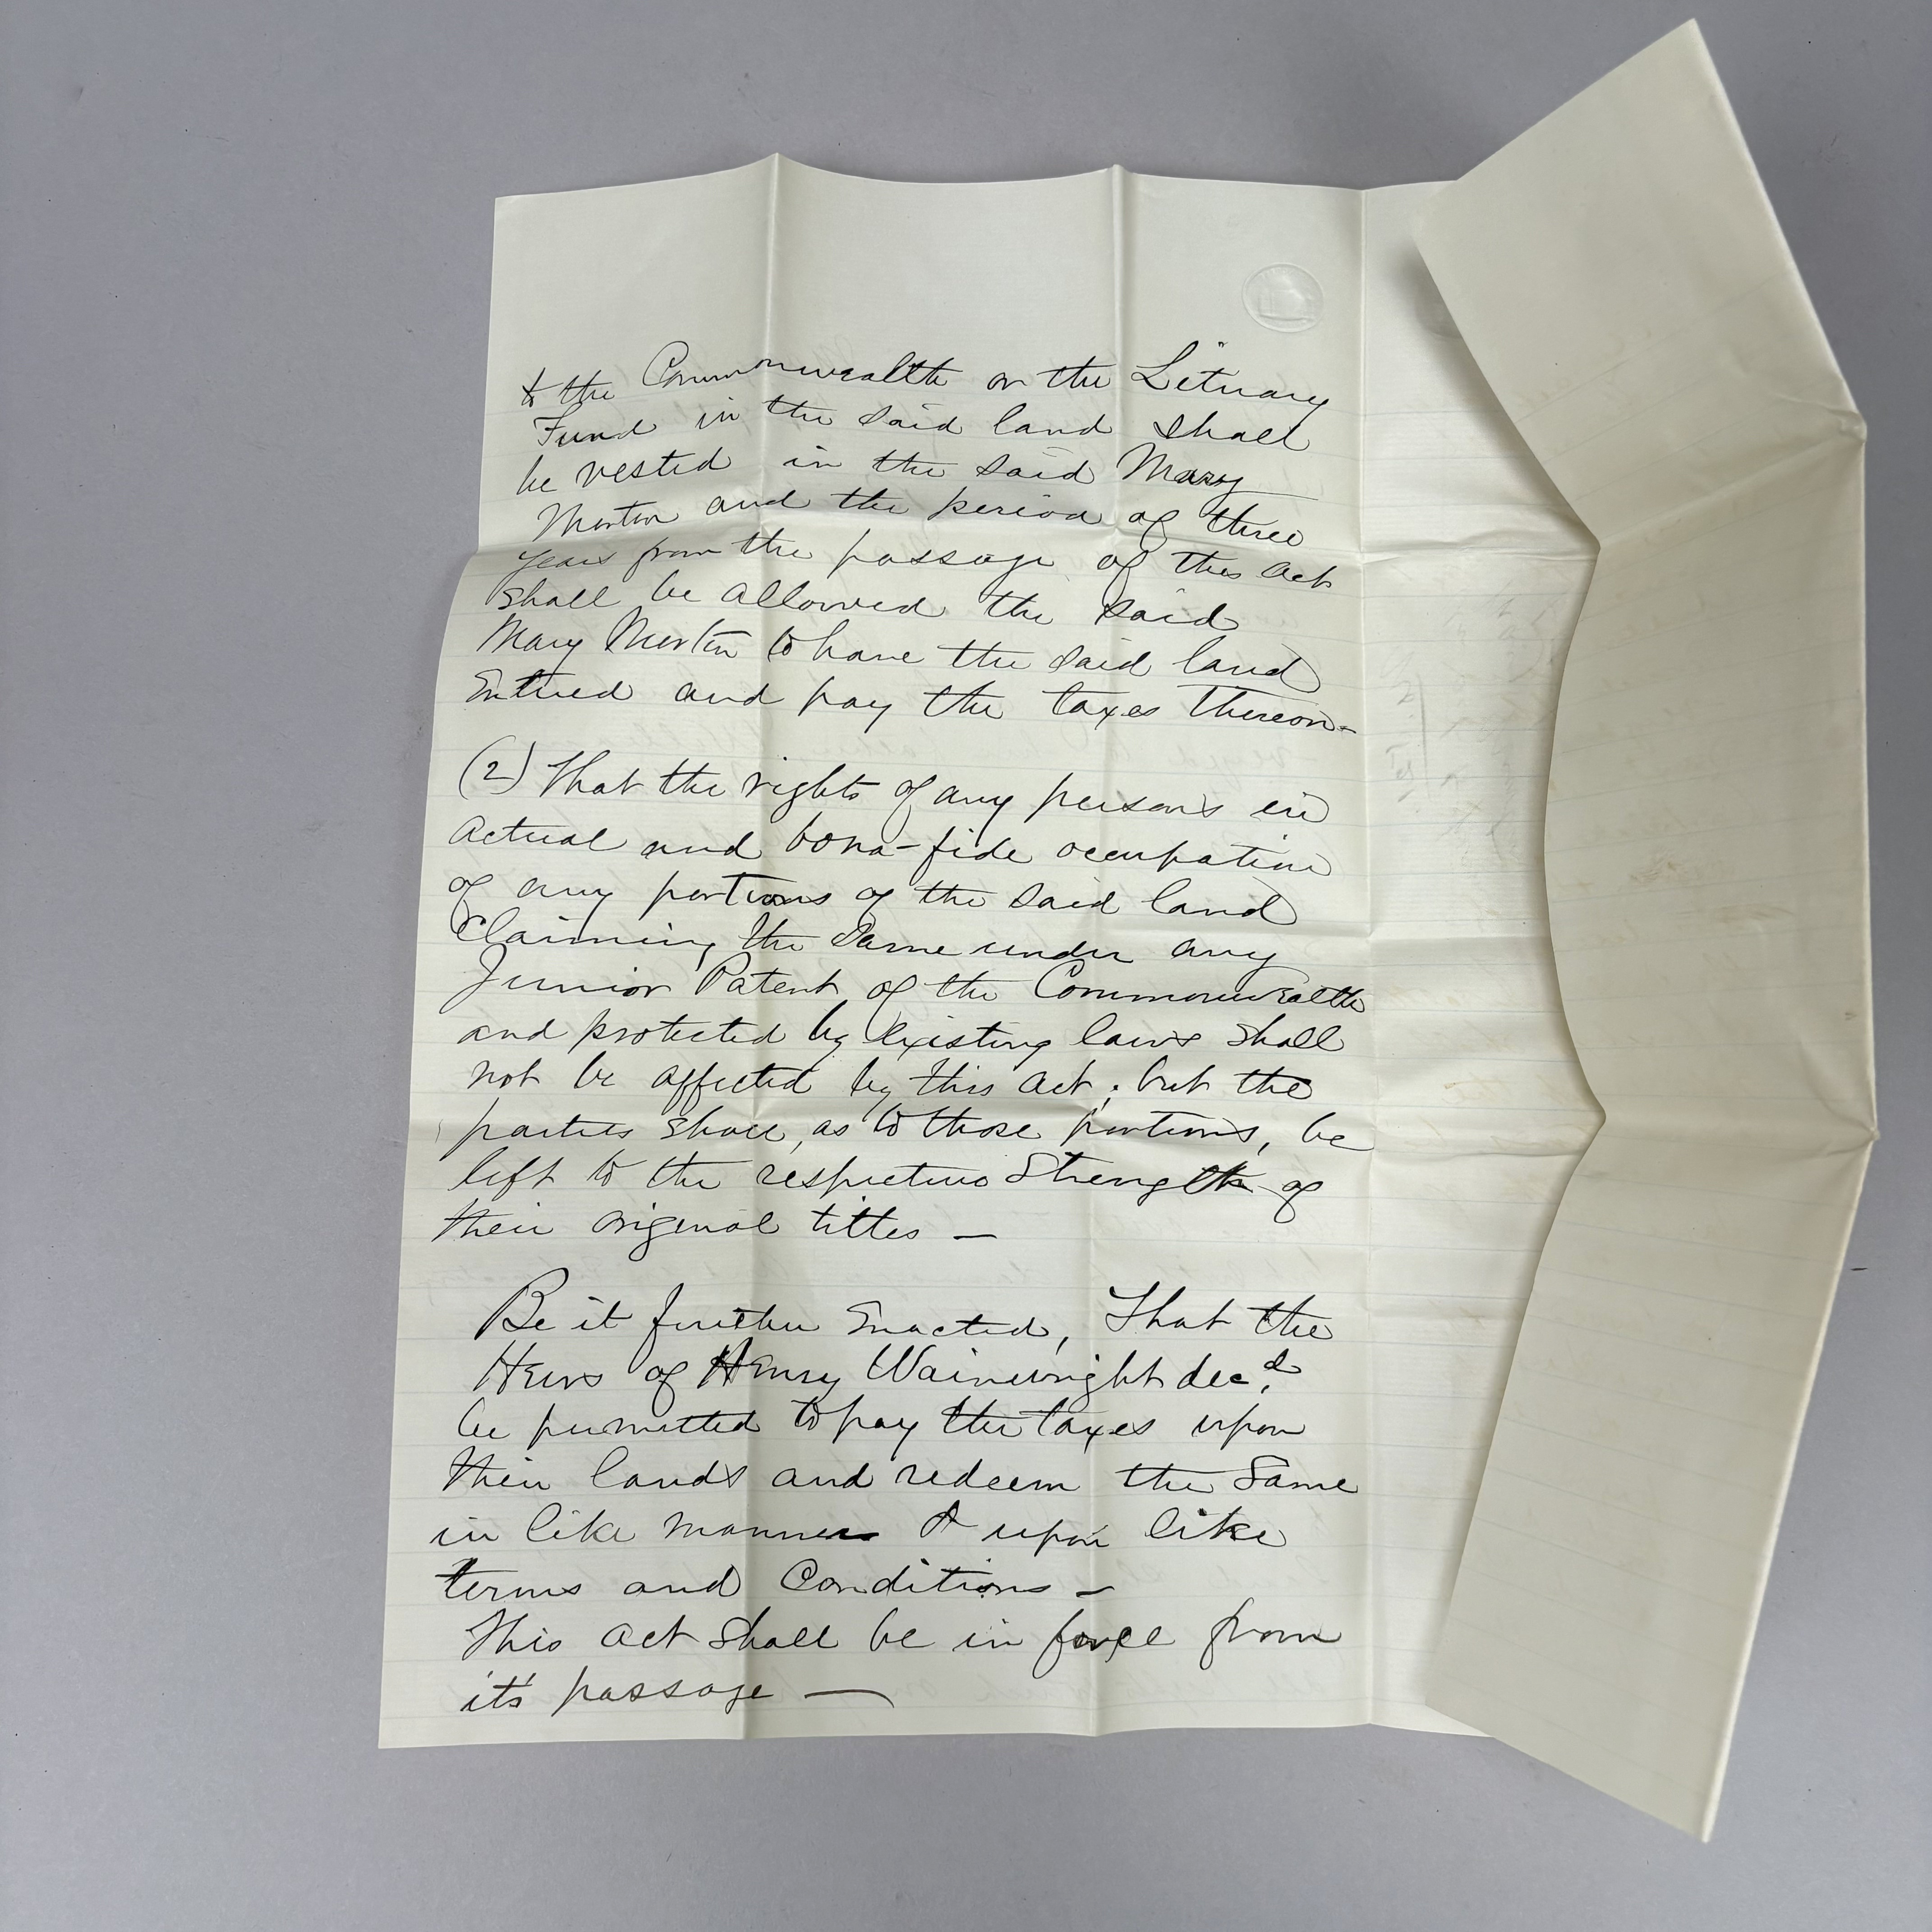 to the Commonwealth or the Literary
Fund in the said land shall
be vested in the said Mary
Morton and the period of three
years from the passage of this act
shall be allowed the said
Mary Morton to have the said land
Entered and pay the taxes thereon—
(2) That the rights of any persons in
actual and bona-fide occupation
of any portions of the said land
Claiming the same under any
Junior Patent of the Commonwealth
and protected by existing laws shall
not be affected by this act; but the
parties shall, as to those portions, be
left to the respective strength of
their original titles —
Be it further Enacted, That the
Heirs of Henry Wainwright decd.
be permitted to pay the taxes upon
their lands and redeem the same
in like manner & upon like
terms and Conditions —
This act shall be in force from
it's passage —